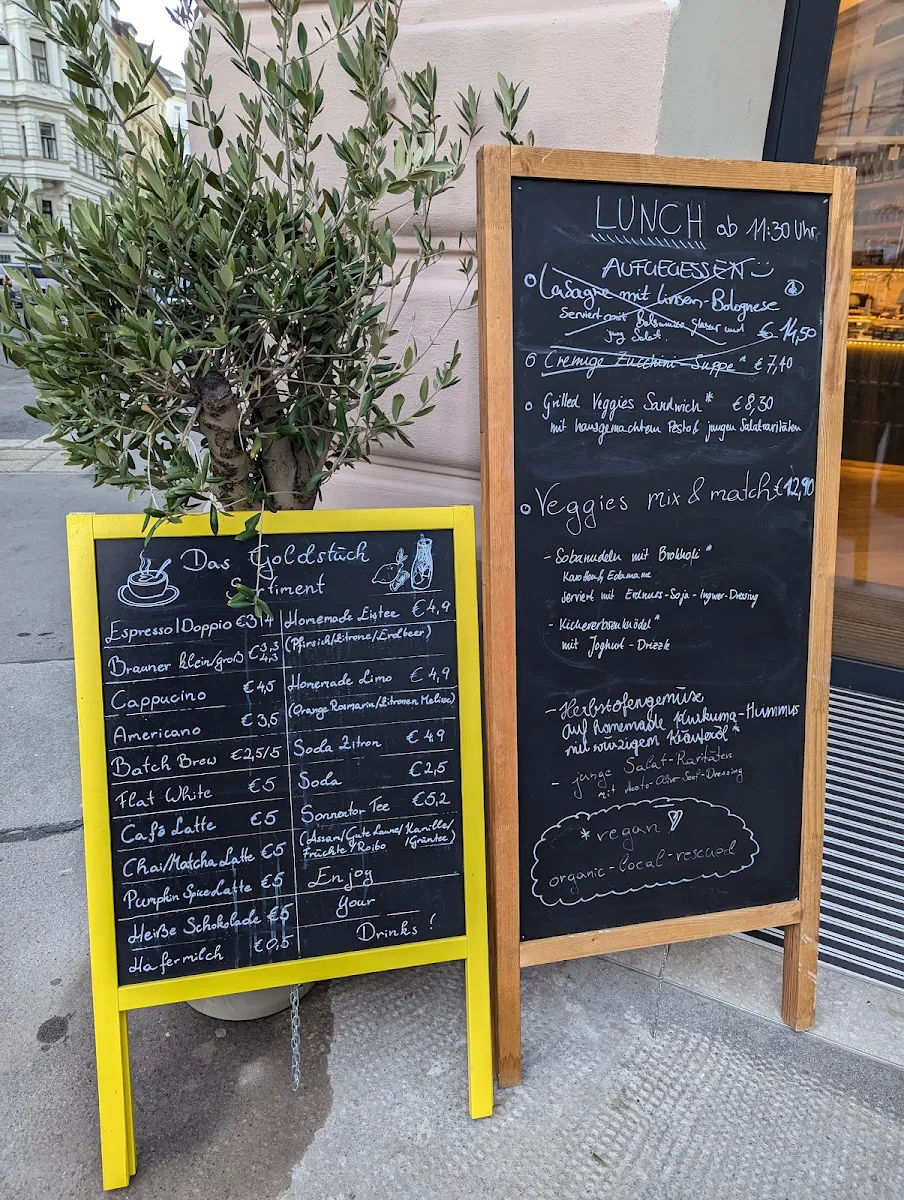 Das Goldstück
Espresso/Doppio €3/4
Brauner klein/groß €3,3
4,3
Cappucino €4,5
Americano €3,5
Batch Brew €2,5/5
Flat White €5
Café Latte €5
Chai/Matcha Latte €5
Pumpkin Spice Latte €5
Heiße Schokolade €5
Hafermilch €0,5
Homemade Eistee €4,9
(Pfirsich/Zitrone/Erdbeer)
Homemade Limo €4,9
(Orange Rosmarin/Zitronen Melisse)
Soda Zitron €4,9
Soda €2,5
Sonnentor Tee €5,2
(Assam/Gute Laune/Kamille/
Früchte/Roibo /Grüntee)
Enjoy
Your
Drinks!
LUNCH ab 11:30 Uhr
AUFGEGESSEN
Lasagne mit Linsen-Bolognese
serviert mit Balsamico Glasur und
jung Salat. € 14,50
Cremige Zucchini-Suppe* €7,40
Grilled Veggies Sandwich* €8,30
mit hausgemachtem Pesto & jungen Salatraritäten
Veggies mix & match €12,90
- Sobanudeln mit Brokkoli*
Karotten & Edamame
serviert mit Erdnuss-Soja-Ingwer-Dressing
- Kichererbsenknödel*
mit Joghurt-Drizzle
- Herbstofengemüse
auf homemade Kurkuma-Hummus
mit würzigem Kräuteröl*
- junge Salat-Raritäten
mit Senf-Dressing
*vegan
organic-local-rescued